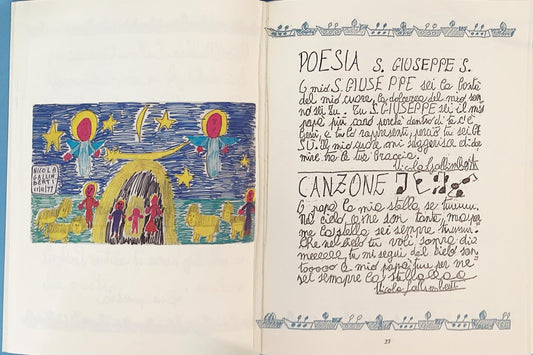 NICOLA
GALLIM
BERTI
POESIA S. GIUSEPPE S.
O mio S. GIUSEPPE sei la fonte
del mio cuore, la dolcezza del mio son
no sei tu. Tu S. GIUSEPPE sei il mio
papà più caro perché dentro di te c'è
Gesù, e tu lo rappresenti, perciò tu sei GE
SU. Il mio cuore mi suggerisce di do
mire tra le tue braccia.
Nicola Gallimberti
CANZONE
O papà la mia stella se tu
nel cielo, a me son tante, ma per
me la stella sei sempre
Che nel cielo tu voli sopra di
tu mi segui dal cielo san
o mio papà per me
sei sempre la stella
Nicola Gallimberti